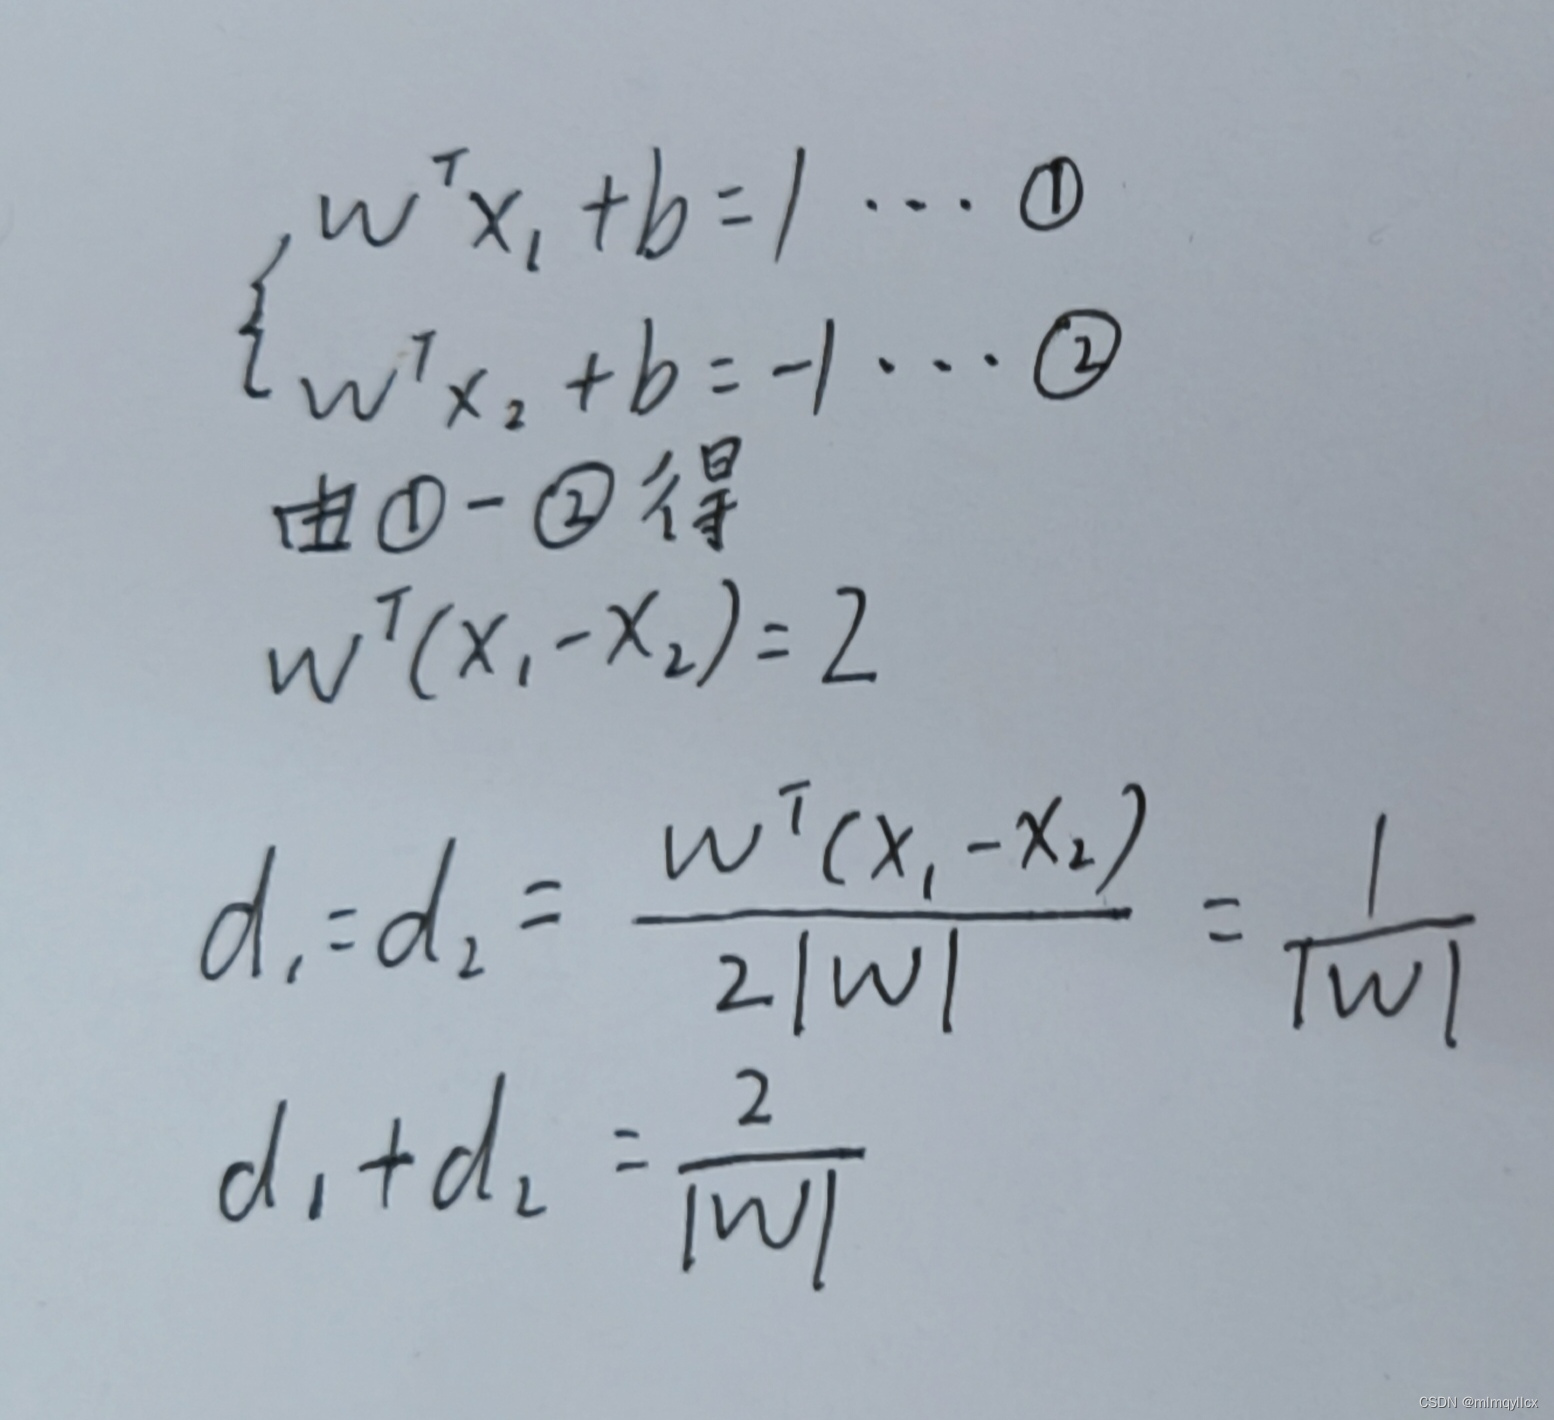 wᵀx₁ + b = 1 ··· ①
wᵀx₂ + b = -1 ··· ②
由①-②得
wᵀ(x₁-x₂) = 2
d₁ = d₂ = \frac{wᵀ(x₁-x₂)}{2|w|} = \frac{1}{|w|}
d₁ + d₂ = \frac{2}{|w|}
CSDN @mlmqyllcx